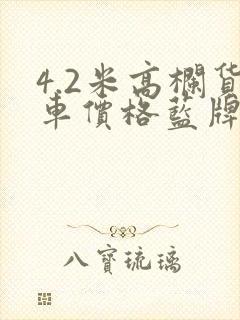 4.2米高欄货
車價格藍牌
八寳琉璃